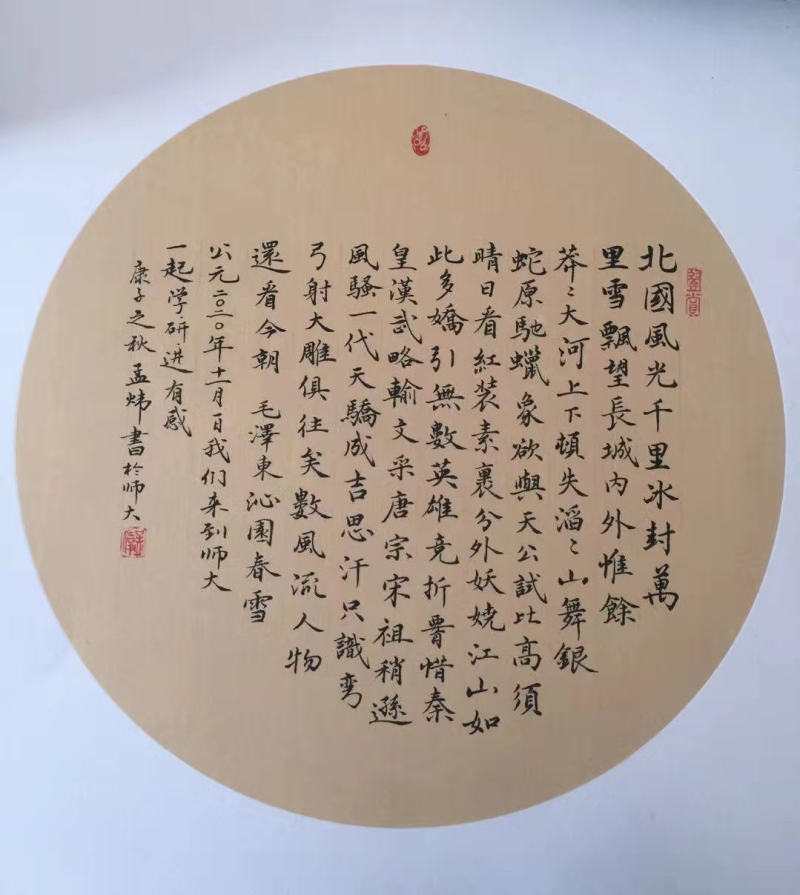 北國風光千里冰封萬
里雪飄望長城內外惟餘
莽〻大河上下頓失滔〻山舞銀
蛇原馳蠟象欲與天公試比高須
晴日看紅装素裹分外妖嬈江山如
此多嬌引無數英雄竞折腰惜秦
皇漢武略輸文采唐宗宋祖稍遜
風騷一代天驕成吉思汗只識彎
弓射大雕俱往矣數風流人物
還看今朝 毛澤東沁園春雪
公元二〇二〇年十一月一日我们来到师大
一起学研进有感
康子之秋孟炜書於师大